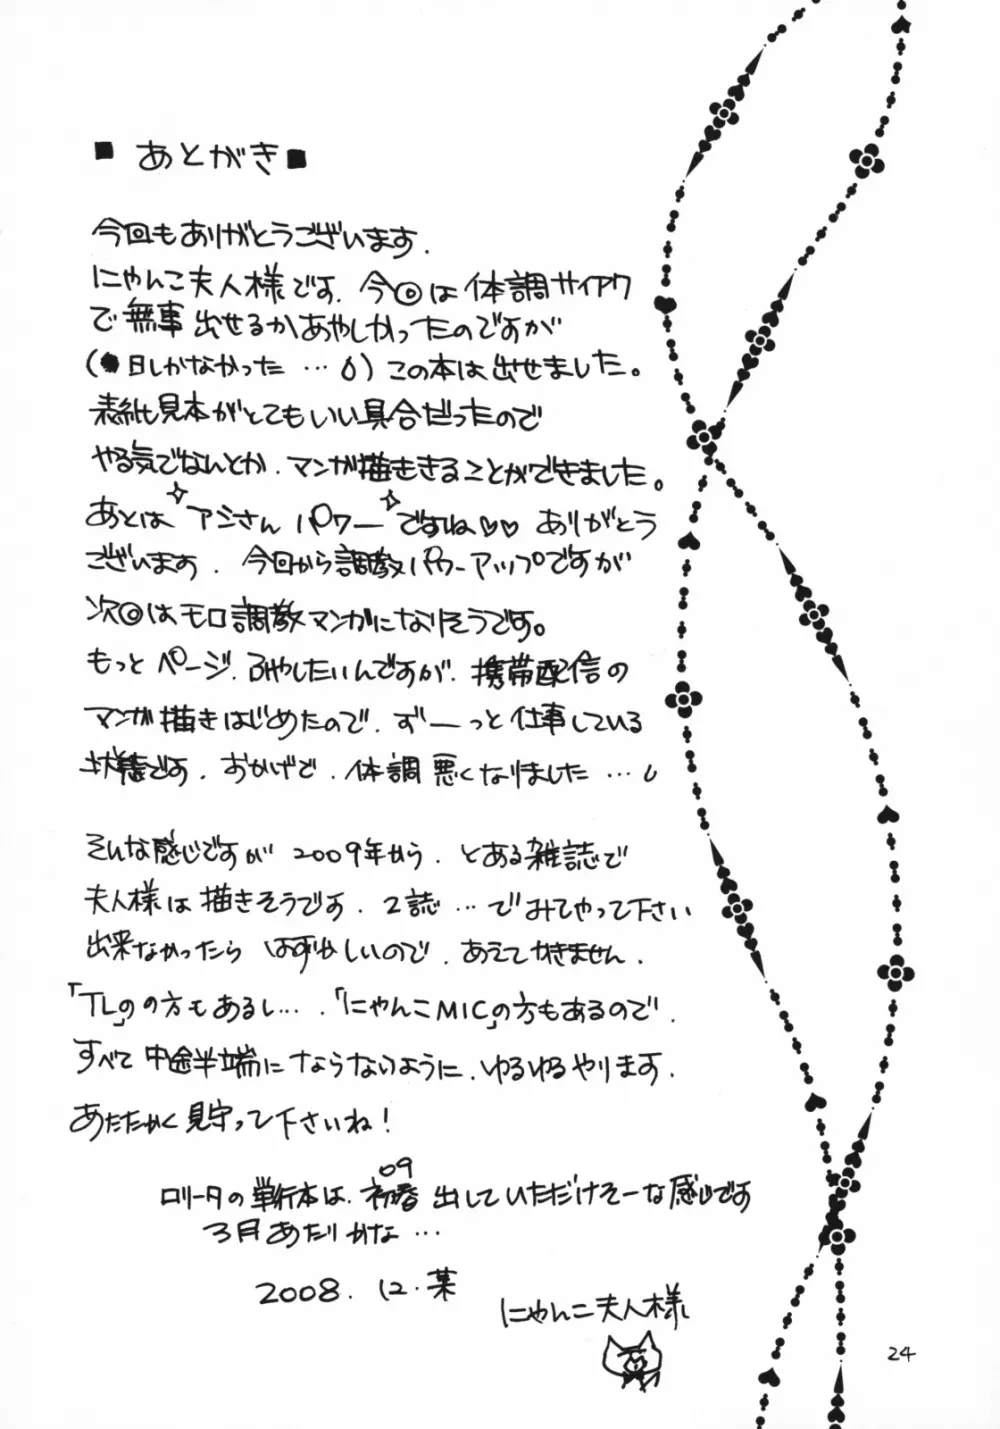 ■ あとがき ■
今回もありがとうございます.
にゃんこ夫人様です. 今回は体調サイアク
で無事出せるかあやしかったのですが
(●日しかなかった …) この本は出せました。
表紙見本がとてもいい具合だったので
やる気でなんとか. マンガ描ききることができました。
あとは アシさん パワー ですね♡♡ ありがとう
ございます. 今回から調教パワーアップですが
次回はモロ調教マンガになりそうです。
もっとページ. ふやしたいんですが. 携帯配信の
マンガ描きはじめたので. ずーっと仕事している
状態です. おかげで. 体調悪くなりました …
そんな感じですが 2009年から. とある雑誌で
夫人様は描きそうです. 2誌 … でみてやって下さい
出来なかったら はずかしいので. あえてかきません.
「TLの」の方もあるし…. 「にゃんこMIC」の方もあるので.
すべて中途半端にならないように. ゆるゆるやります.
あたたかく見守って下さいね!
ロリータの単行本は. 09初春 出していただけそーな感じです
3月あたりかな …
2008. 12. 某
にゃんこ夫人様
24